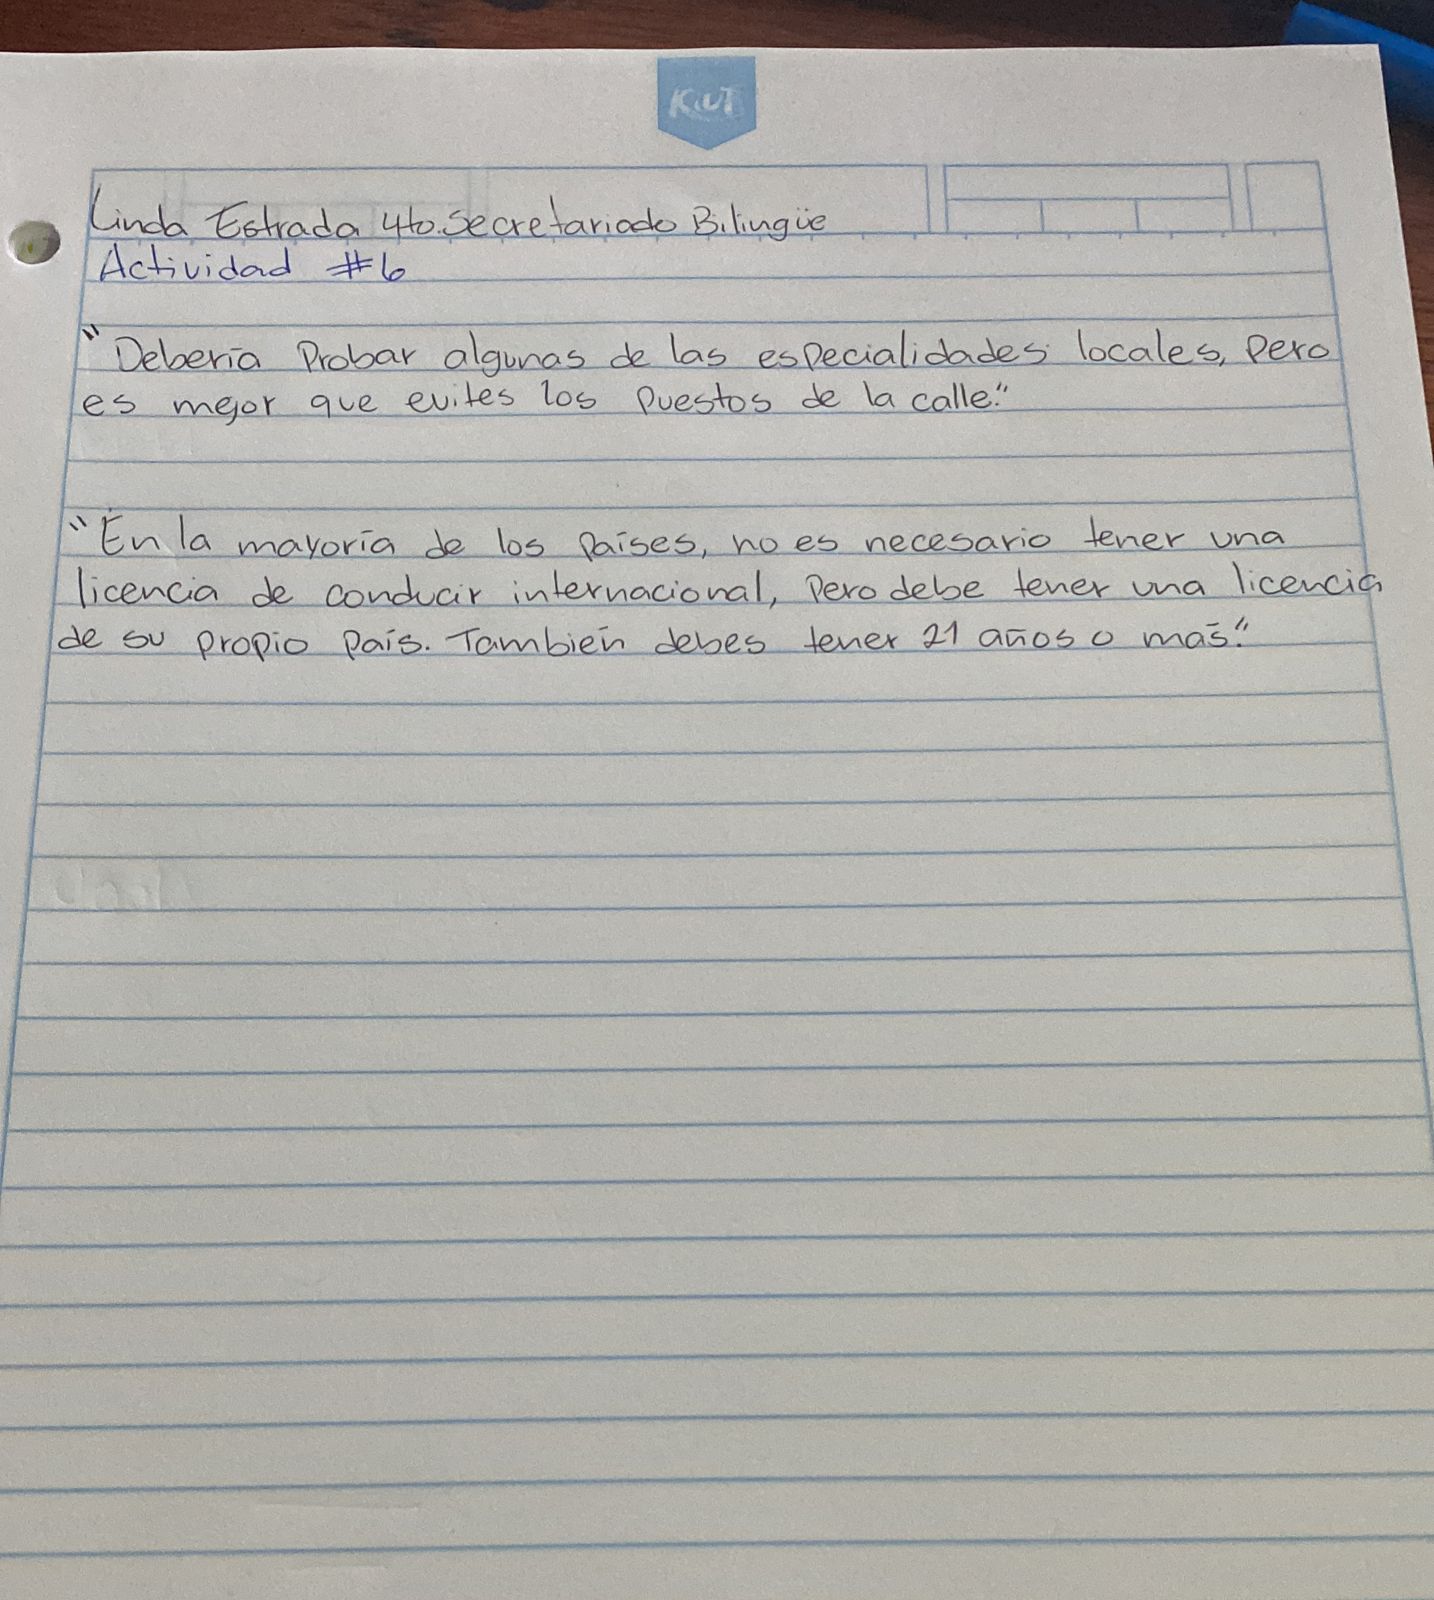 KIUT
Linda Estrada 4to. Secretariado Bilingüe
Actividad #6
"Debería Probar algunas de las especialidades locales, pero
es mejor que evites los puestos de la calle."
"En la mayoría de los países, no es necesario tener una
licencia de conducir internacional, pero debe tener una licencia
de su propio país. También debes tener 21 años o más."